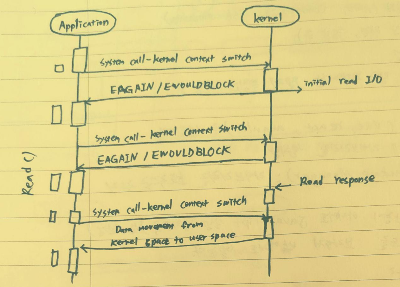 Application
kernel
System call-kernel context switch
EAGAIN / EWOULDBLOCK
initial read I/O
System call-kernel context switch
EAGAIN / EWOULDBLOCK
Read()
Read response
System call-kernel context switch
Data movement from
kernel space to user space